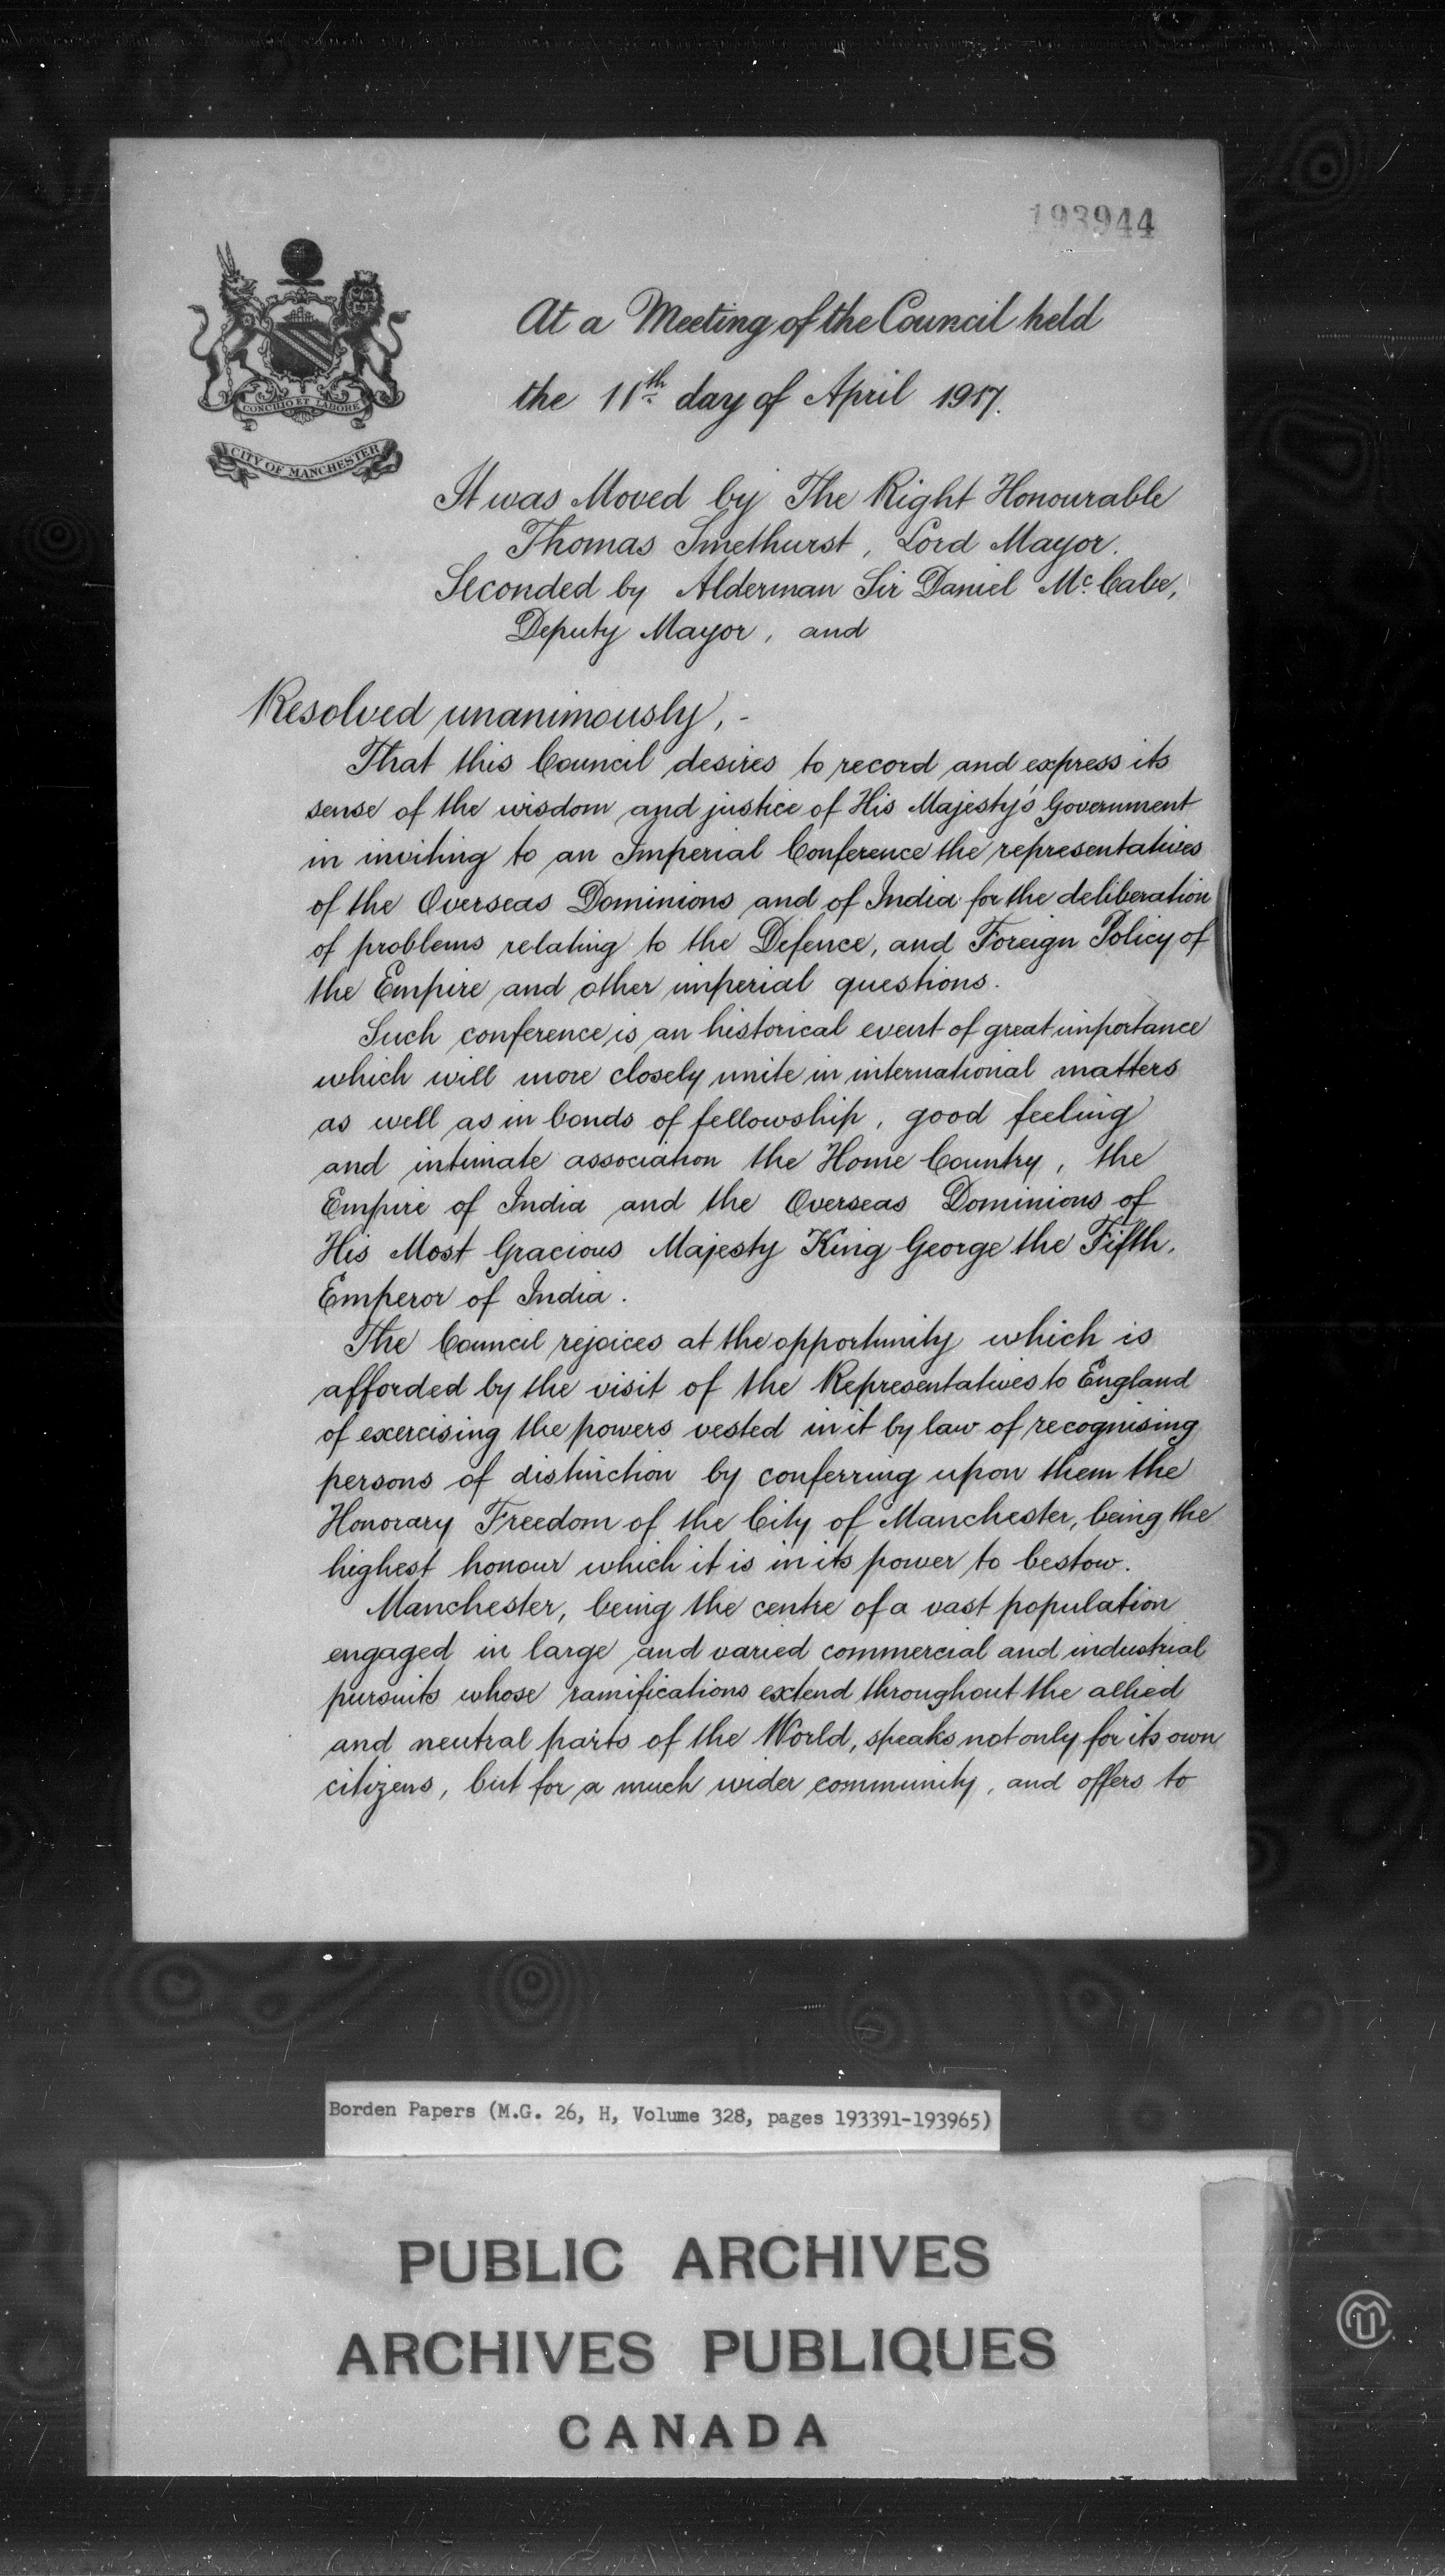 193944
CONCILIO ET LABORE
CITY OF MANCHESTER
At a Meeting of the Council held
the 11th day of April 1917.
It was Moved by The Right Honourable
Thomas Smethurst, Lord Mayor.
Seconded by Alderman Sir Daniel Mc.Cabe,
Deputy Mayor, and
Resolved unanimously,-
That this Council desires to record and express its
sense of the wisdom and justice of His Majesty's Government
in inviting to an Imperial Conference the representatives
of the Overseas Dominions and of India for the deliberation
of problems relating to the Defence, and Foreign Policy of
the Empire and other imperial questions.
Such conference is an historical event of great importance
which will more closely unite in international matters
as well as in bonds of fellowship, good feeling
and intimate association the Home Country, the
Empire of India and the Overseas Dominions of
His Most Gracious Majesty King George the Fifth,
Emperor of India.
The Council rejoices at the opportunity which is
afforded by the visit of the Representatives to England
of exercising the powers vested in it by law of recognising
persons of distinction by conferring upon them the
Honorary Freedom of the City of Manchester, being the
highest honour which it is in its power to bestow.
Manchester, being the centre of a vast population
engaged in large and varied commercial and industrial
pursuits whose ramifications extend throughout the allied
and neutral parts of the World, speaks not only for its own
citizens, but for a much wider community, and offers to
Borden Papers (M.G. 26, H, Volume 328, pages 193391-193965)
PUBLIC ARCHIVES
ARCHIVES PUBLIQUES
CANADA